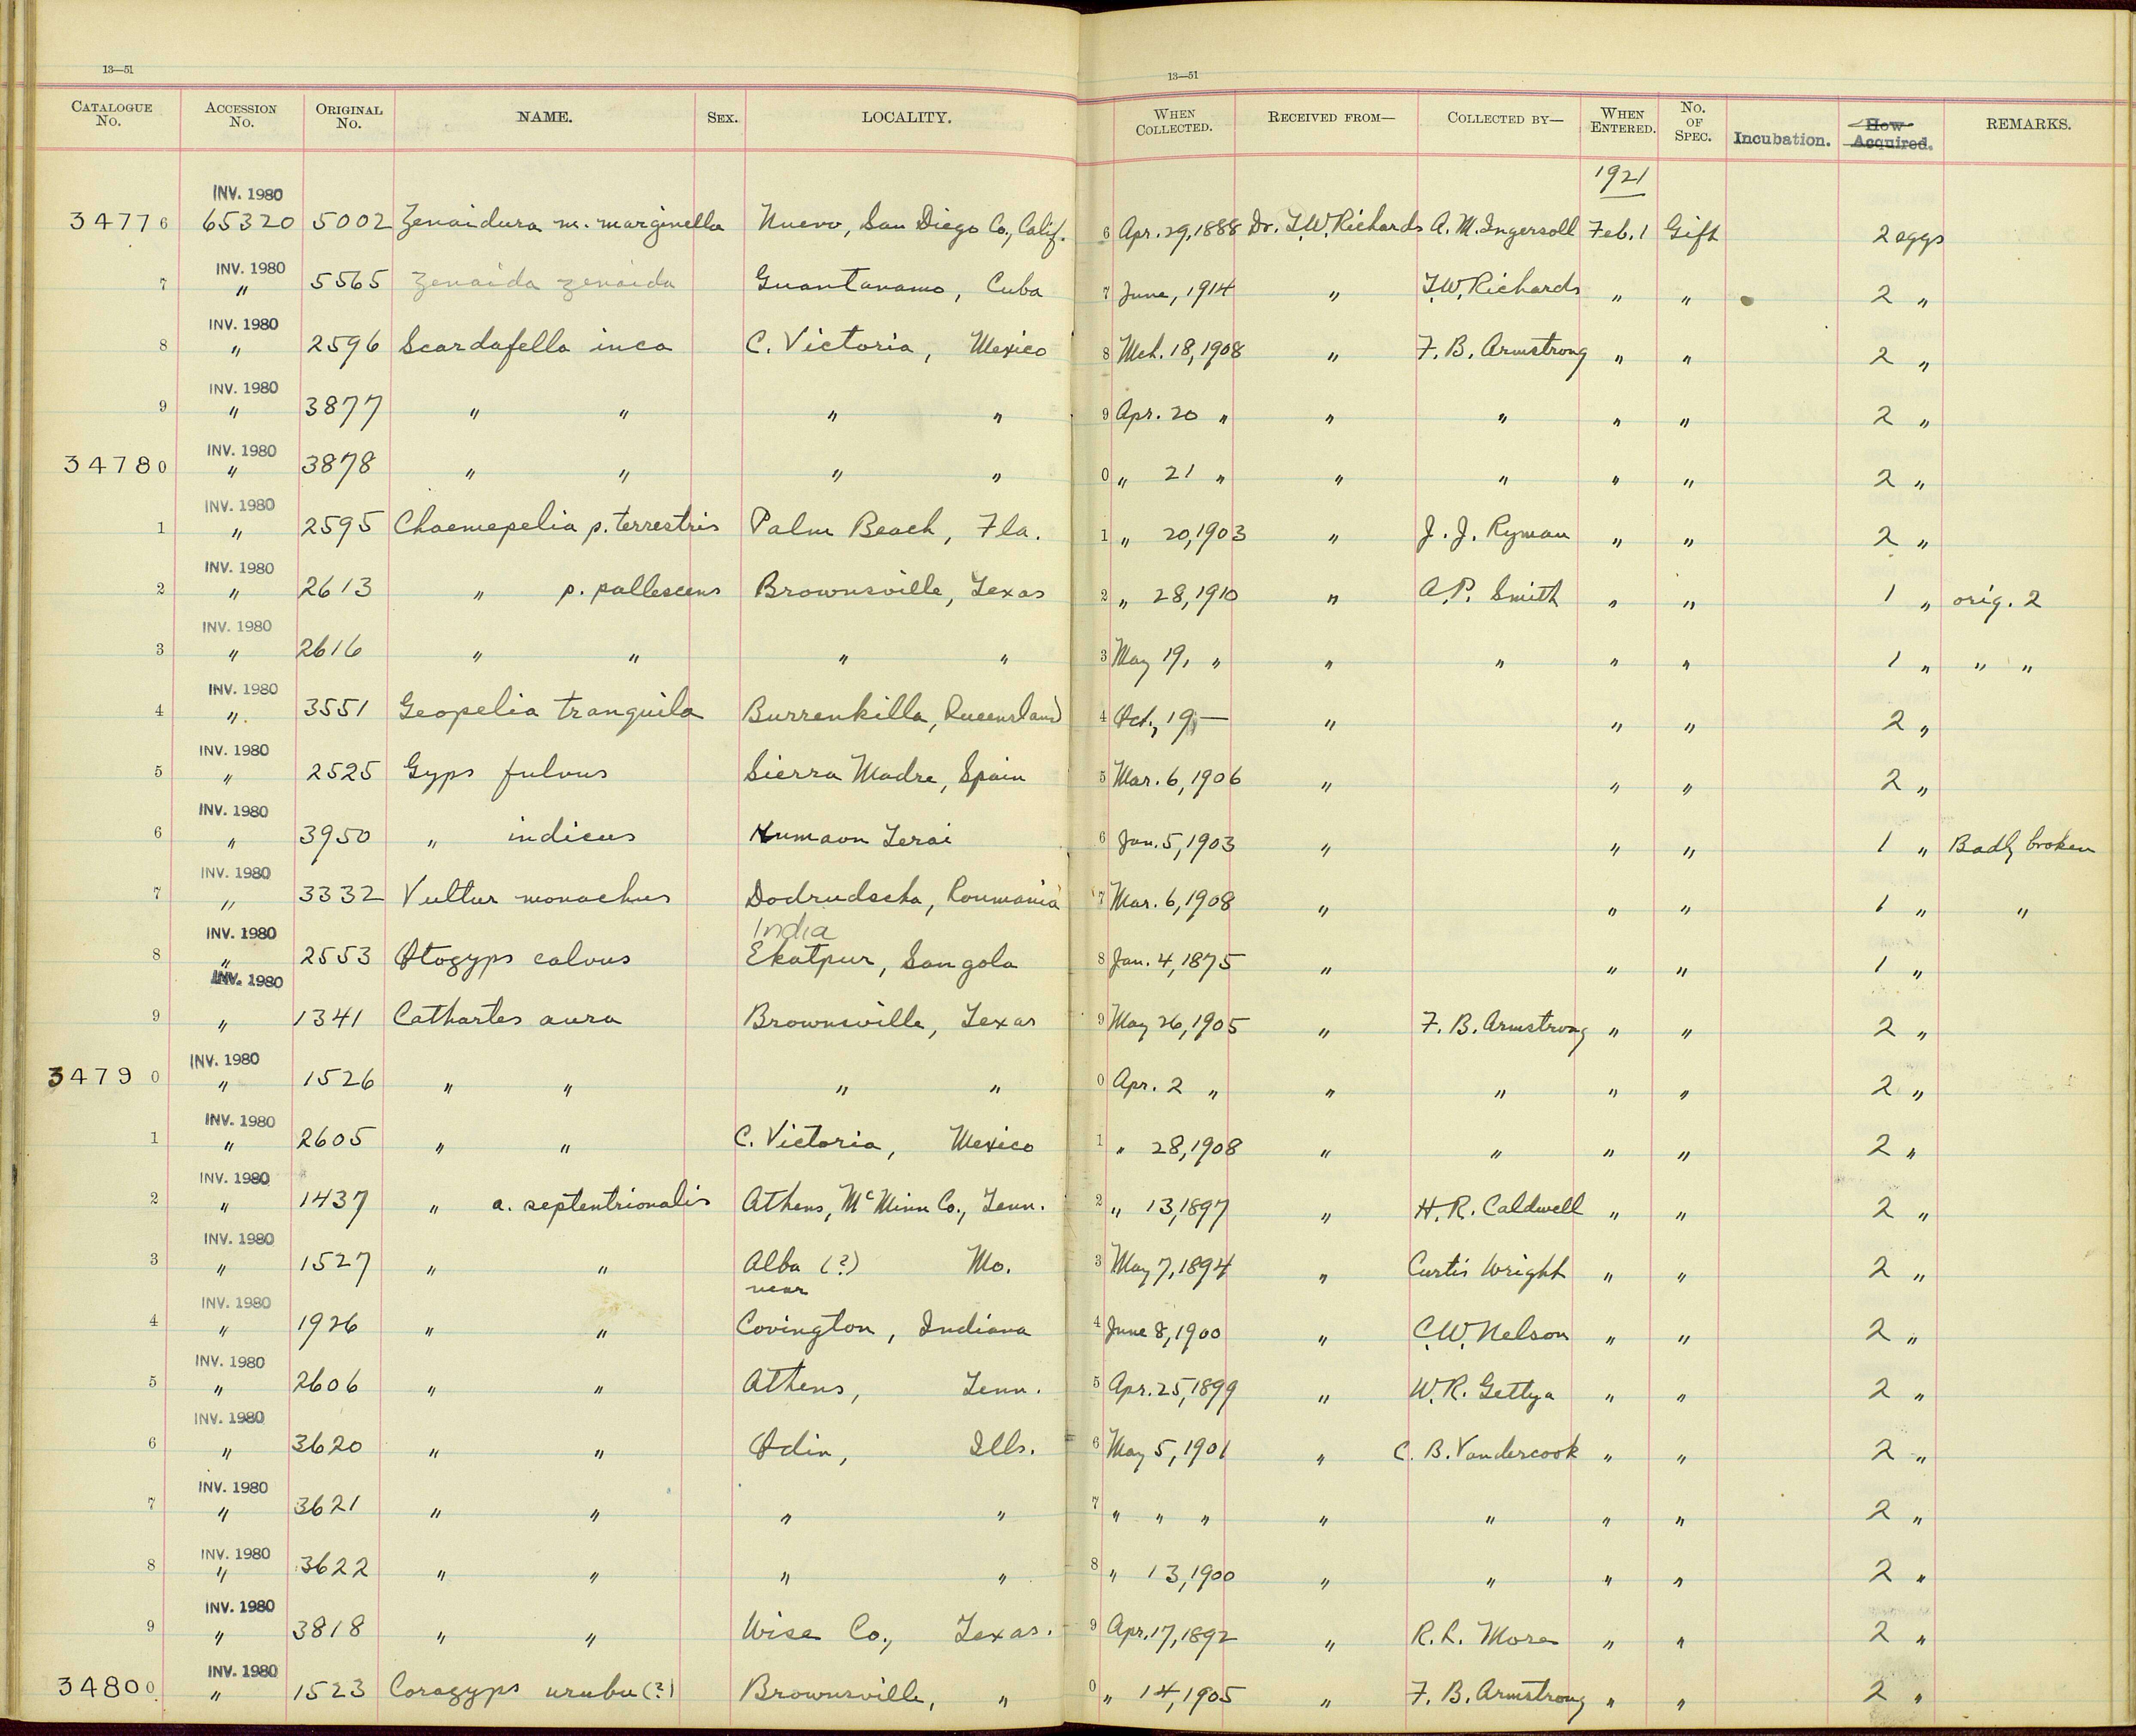 13—51
13—51
CATALOGUE No. ACCESSION No. ORIGINAL No. NAME. SEX. LOCALITY. WHEN COLLECTED. RECEIVED FROM— COLLECTED BY— WHEN ENTERED. NO. OF SPEC. Incubation. How Acquired. REMARKS.
1921
INV. 1980
34776 65320 5002 Zenaidura m. marginella Nuevo, San Diego Co., Calif. 6 Apr. 29, 1888 Dr. T.W. Richards A. M. Ingersoll Feb. 1 Gift 2 eggs
INV. 1980
7 " 5565 Zenaida zenaida Guantanamo, Cuba 7 June, 1914 " T.W. Richards " " 2 "
INV. 1980
8 " 2596 Scardafella inca C. Victoria, Mexico 8 Mch. 18, 1908 " F. B. Armstrong " " 2 "
INV. 1980
9 " 3877 " " " " 9 Apr. 20 " " " " " 2 "
INV. 1980
34780 " 3878 " " " " 0 " 21 " " " " " 2 "
INV. 1980
1 " 2595 Chaemepelia p. terrestris Palm Beach, Fla. 1 " 20, 1903 " J. J. Ryman " " 2 "
INV. 1980
2 " 2613 " p. pallescens Brownsville, Texas 2 " 28, 1910 " A.P. Smith " " 1 " orig. 2
INV. 1980
3 " 2616 " " " " 3 May 19, " " " " " 1 " " "
INV. 1980
4 " 3551 Geopelia tranquila Burrenkilla, Queensland 4 Oct, 19— " " " 2 "
INV. 1980
5 " 2525 Gyps fulvus Sierra Madre, Spain 5 Mar. 6, 1906 " " " 2 "
INV. 1980
6 " 3950 " indicus Kumaon Terai 6 Jan. 5, 1903 " " " 1 " Badly broken
INV. 1980
7 " 3332 Vultur monachus Dodrudscha, Roumania 7 Mar. 6, 1908 " " " 1 " "
India
INV. 1980
8 " 2553 Otogyps calvus Ekatpur, Sangola 8 Jan. 4, 1875 " " " 1 "
INV. 1980
9 " 1341 Cathartes aura Brownsville, Texas 9 May 26, 1905 " F. B. Armstrong " " 2 "
INV. 1980
34790 " 1526 " " " " 0 Apr. 2 " " " " " 2 "
INV. 1980
1 " 2605 " " C. Victoria, Mexico 1 " 28, 1908 " " " " 2 "
INV. 1980
2 " 1437 " a. septentrionalis Athens, McMinn Co., Tenn. 2 " 13, 1897 " H. R. Caldwell " " 2 "
INV. 1980
3 " 1527 " " Alba (?) Mo. 3 May 7, 1894 " Curtis Wright " " 2 "
near
INV. 1980
4 " 1926 " " Covington, Indiana 4 June 8, 1900 " C.W. Nelson " " 2 "
INV. 1980
5 " 2606 " " Athens, Tenn. 5 Apr. 25, 1899 " W. R. Gettya " " 2 "
INV. 1980
6 " 3620 " " Odin, Ills. 6 May 5, 1901 " C. B. Vandercook " " 2 "
INV. 1980
7 " 3621 " " " " 7 " " " " " " " 2 "
INV. 1980
8 " 3622 " " " " 8 " 13, 1900 " " " " 2 "
INV. 1980
9 " 3818 " " Wise Co., Texas. 9 Apr. 17, 1892 " R. L. More " " 2 "
INV. 1980
34800 " 1523 Coragyps urubu (?) Brownsville, " 0 " 14, 1905 " F. B. Armstrong " " 2 "